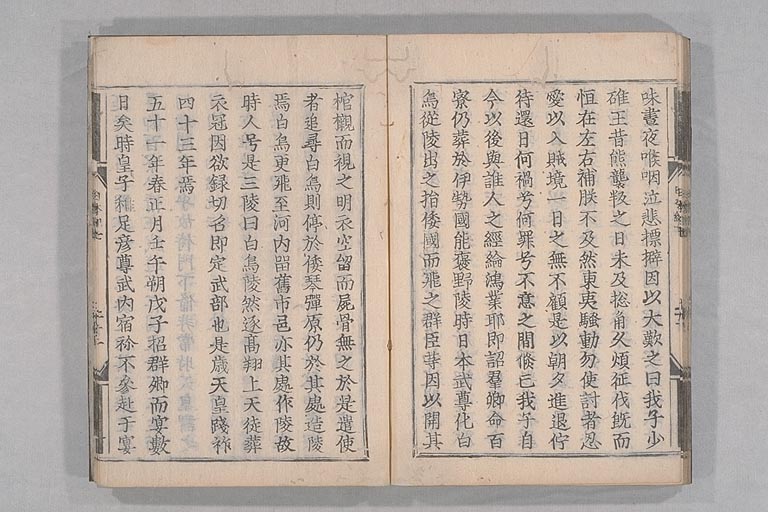 味晝夜喉咽泣悲摽擗因以大歎之曰我子少
碓王昔熊襲叛之日未及捴角久煩征伐旣而
恒在左右補朕不及然東夷騷動勿使討者忍
愛以入賊境一日之無不顧是以朝夕進退佇
待還日何禍兮何罪兮不意之間倐亡我子自
今以後與誰人之經綸鴻業耶即詔羣卿命百
寮仍葬於伊勢國能襃野陵時日本武尊化白
鳥從陵出之指倭國而飛之群臣䓁因以開其
棺櫬而視之明衣空留而屍骨無之於是遣使
者追尋白鳥則停於倭琴彈原仍於其處造陵
焉白鳥更飛至河內留舊市邑亦其處作陵故
時人号是三陵曰白鳥陵然遂髙翔上天徒葬
衣冠因欲録功名即定武部也是歳天皇踐祚
四十三年焉
五十一年春正月壬午朔戊子招群卿而宴數
日矣時皇子稚足彦尊武內宿祢不參赴于宴